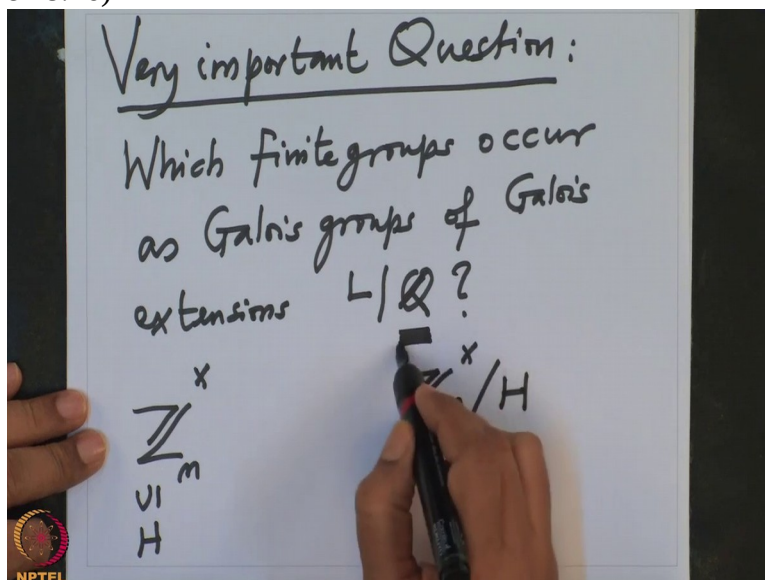 Very important Question:
Which finite groups occur
as Galois groups of Galois
extensions L/ℚ?
ℤₘˣ
UI
H
ˣ/H
NPTEL